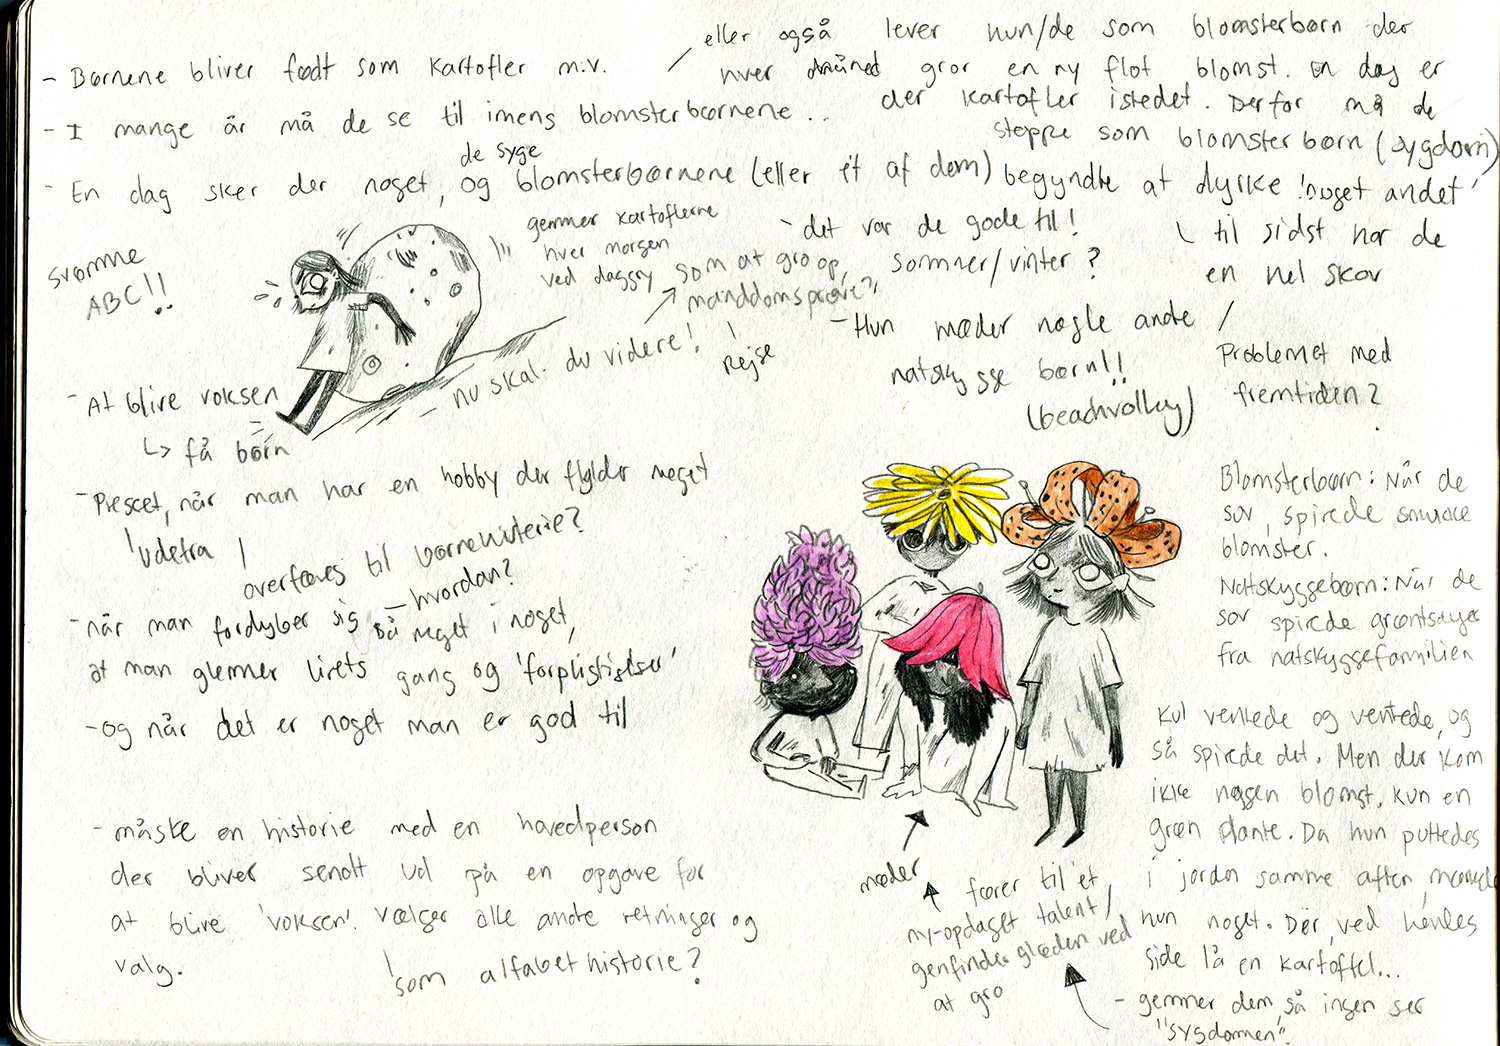 - Børnene bliver født som kartofler m.v.
eller også lever hun/de som blomsterbørn der
hver måned gror en ny flot blomst. En dag er
der kartofler istedet. Derfor må de
stoppe som blomsterbørn (sygdom)
- I mange år må de se til imens blomsterbørnene ..
de syge
- En dag sker der noget, og blomsterbørnene (eller ét af dem) begyndte at dyrke 'noget andet'
gemmer kartoflerne
hver morgen
ved daggry
det var de gode til!
sommer/vinter?
til sidst har de
en hel skov
svømme
ABC!!
som at gro op,
manddomsprøve?
rejse
nu skal du videre!
- Hun møder nogle andre
natskyggebørn!!
(beachvolley)
Problemet med
fremtiden?
- At blive voksen
↳ få børn
- Presset, når man har en hobby der fylder meget
udefra
overføres til børnehisterie?
- hvordan?
- når man fordyber sig så meget i noget,
at man glemmer livets gang og 'forpligtigelser'
- og når det er noget man er god til
- måske en historie med en hovedperson
der bliver sendt ud på en opgave for
at blive 'voksen'. Vælger alle andre retninger og
valg.
som alfabethistorie?
Blomsterbørn: Når de
sov, spirede smukke
blomster.
Natskyggebørn: Når de
sov spirede grøntsager
fra natskyggefamilien
Kul ventede og ventede, og
så spirede det. Men der kom
ikke nogen blomst, kun en
grøn plante. Da hun puttedes
i jorden samme aften, mærkede
hun noget. Der, ved hendes
side lå en kartoffel...
- gemmer dem, så ingen ser
"sygdommen".
møder
fører til et
ny-opdaget talent/
genfinder glæden ved
at gro